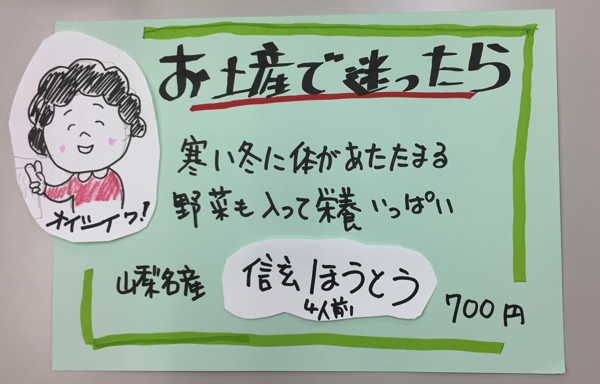 お土産で迷ったら
寒い冬に体があたたまる
野菜も入って栄養いっぱい
オイシイワ!
山梨名産
信玄ほうとう
4人前
700円